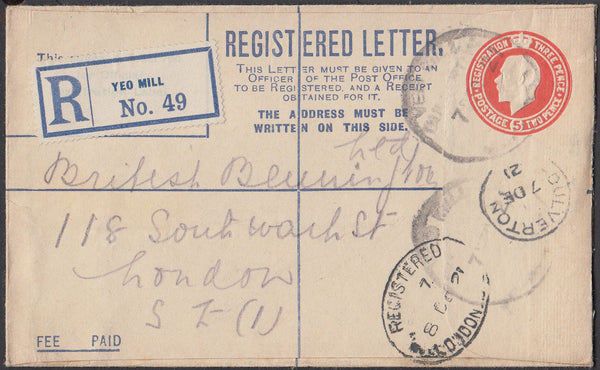 REGISTERED LETTER.
THIS LETTER MUST BE GIVEN TO AN
OFFICER OF THE POST OFFICE
TO BE REGISTERED, AND A RECEIPT
OBTAINED FOR IT.
THE ADDRESS MUST BE
WRITTEN ON THIS SIDE.
R
YEO MILL
No. 49
REGISTRATION THREE PENCE
POSTAGE 5 TWO PENCE
DULVERTON
7 DE
21
Ltd
British
118 Southwark St
London
S E (1)
REGISTERED
8 DE 21
LONDON
FEE PAID